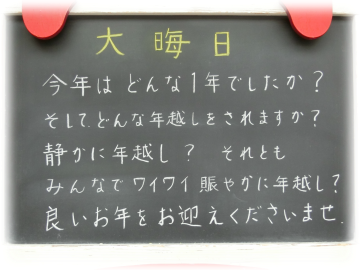 大晦日
今年は どんな1年でしたか？
そして、どんな年越しをされますか？
静かに年越し？ それとも
みんなでワイワイ賑やかに年越し？
良いお年をお迎えくださいませ.